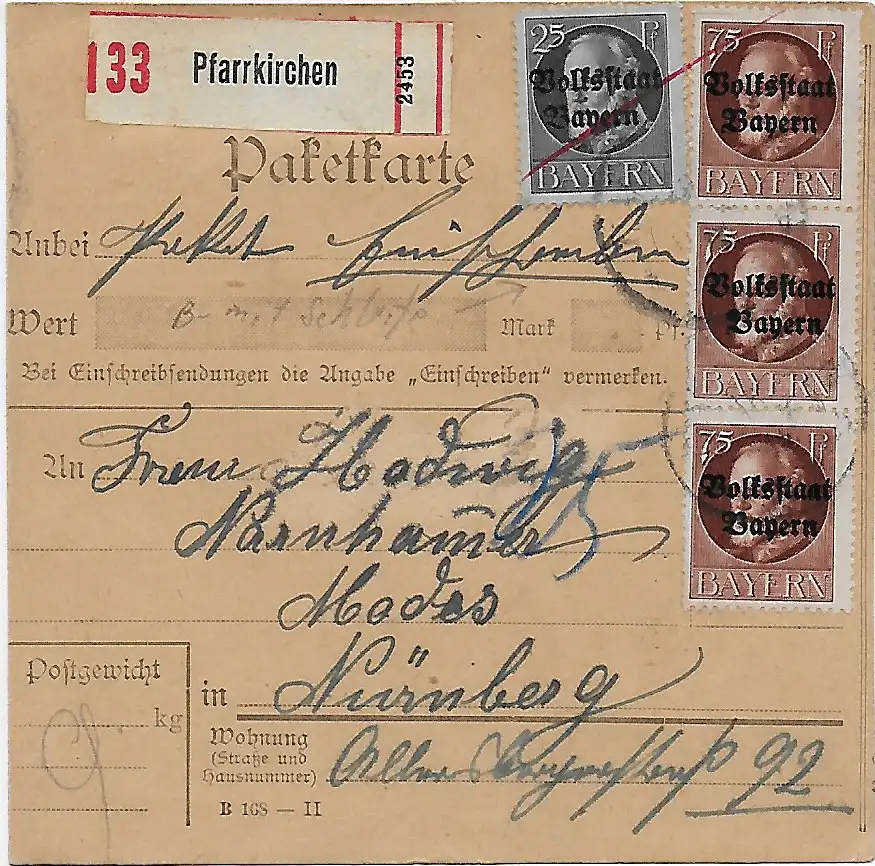 133 Pfarrkirchen 2453
25 Pf
Volksstaat
Bayern
BAYERN
75 Pf
Volksstaat
Bayern
BAYERN
Paketkarte
Anbei Paket Einschreiben
75 Pf
Volksstaat
Bayern
BAYERN
Wert B- mit Schleife Mark Pf.
Bei Einschreibsendungen die Angabe „Einschreiben" vermerken.
75 Pf
Volksstaat
Bayern
BAYERN
An Hedwig
Modes
Postgewicht
kg
in Nürnberg
Wohnung
(Straße und
Hausnummer)
92
B 168 — II